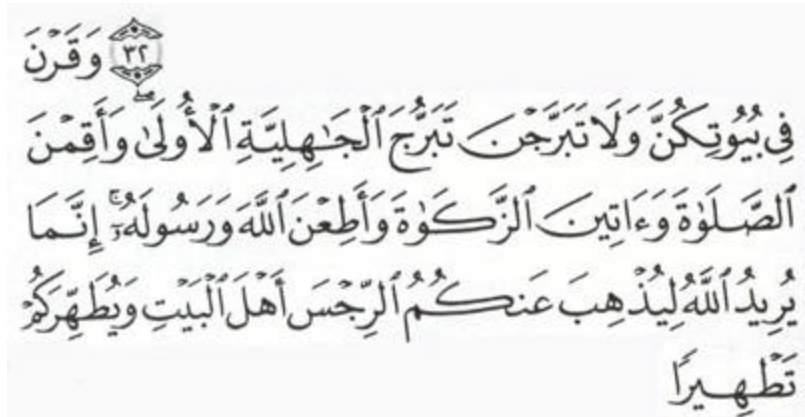 ۝٣٢ وَقَرۡنَ
فِي بُيُوتِكُنَّ وَلَا تَبَرَّجۡنَ تَبَرُّجَ ٱلۡجَٰهِلِيَّةِ ٱلۡأُولَىٰ وَأَقِمۡنَ
ٱلصَّلَوٰةَ وَءَاتِينَ ٱلزَّكَوٰةَ وَأَطِعۡنَ ٱللَّهَ وَرَسُولَهُۥٓۚ إِنَّمَا
يُرِيدُ ٱللَّهُ لِيُذۡهِبَ عَنكُمُ ٱلرِّجۡسَ أَهۡلَ ٱلۡبَيۡتِ وَيُطَهِّرَكُمۡ
تَطۡهِيرٗا